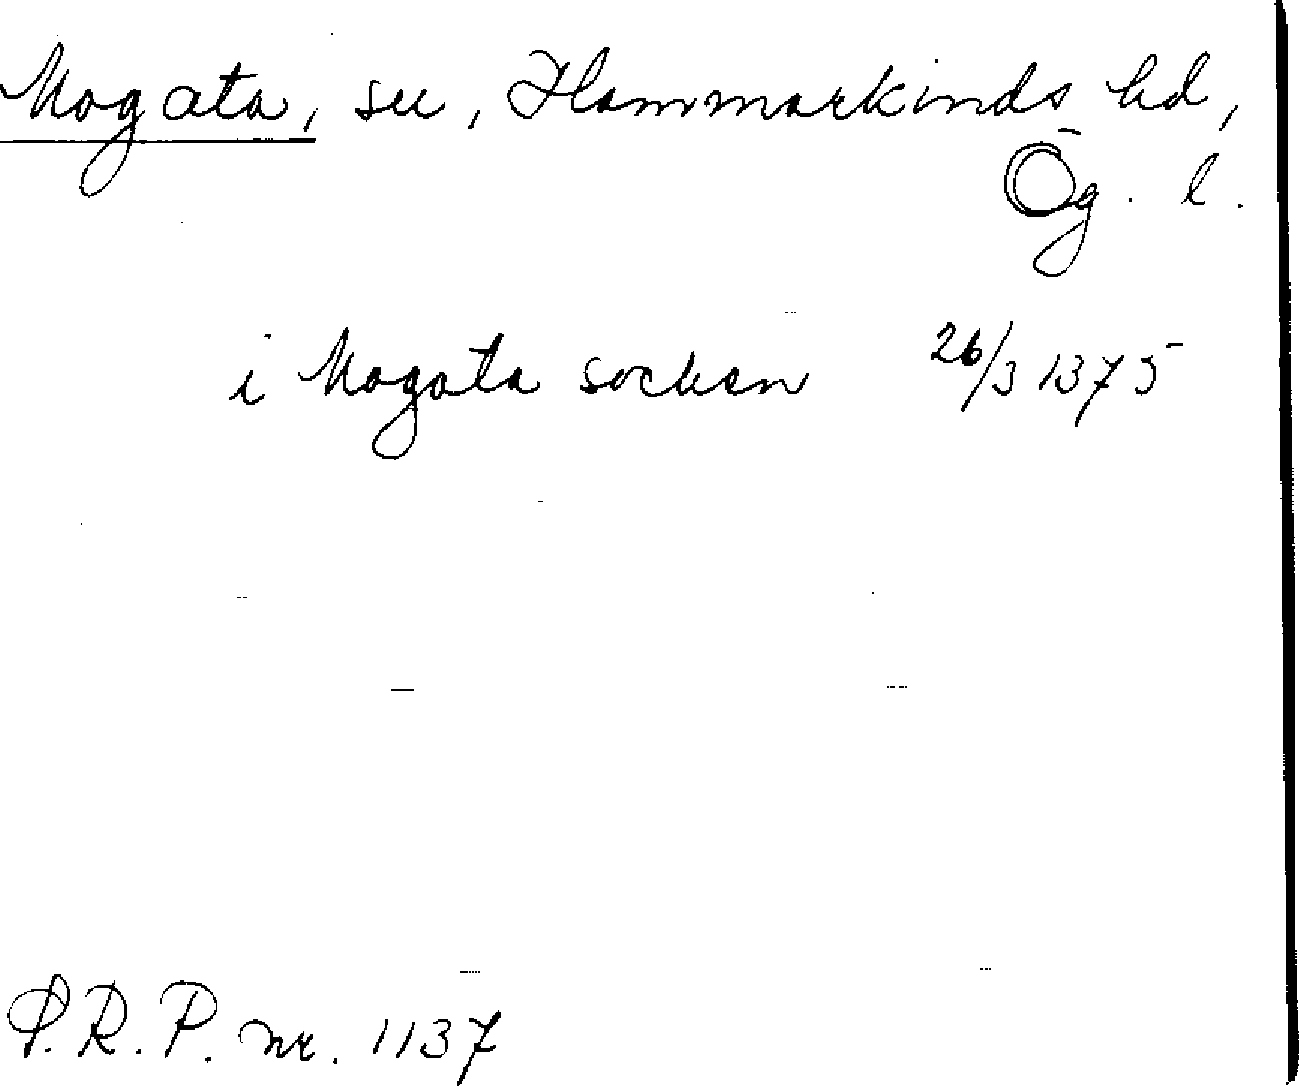 Mogata, sn, Hammarkinds hd,
Ög. l.
i Mogata socken 26/3 1375
S.R.P. nr. 1137